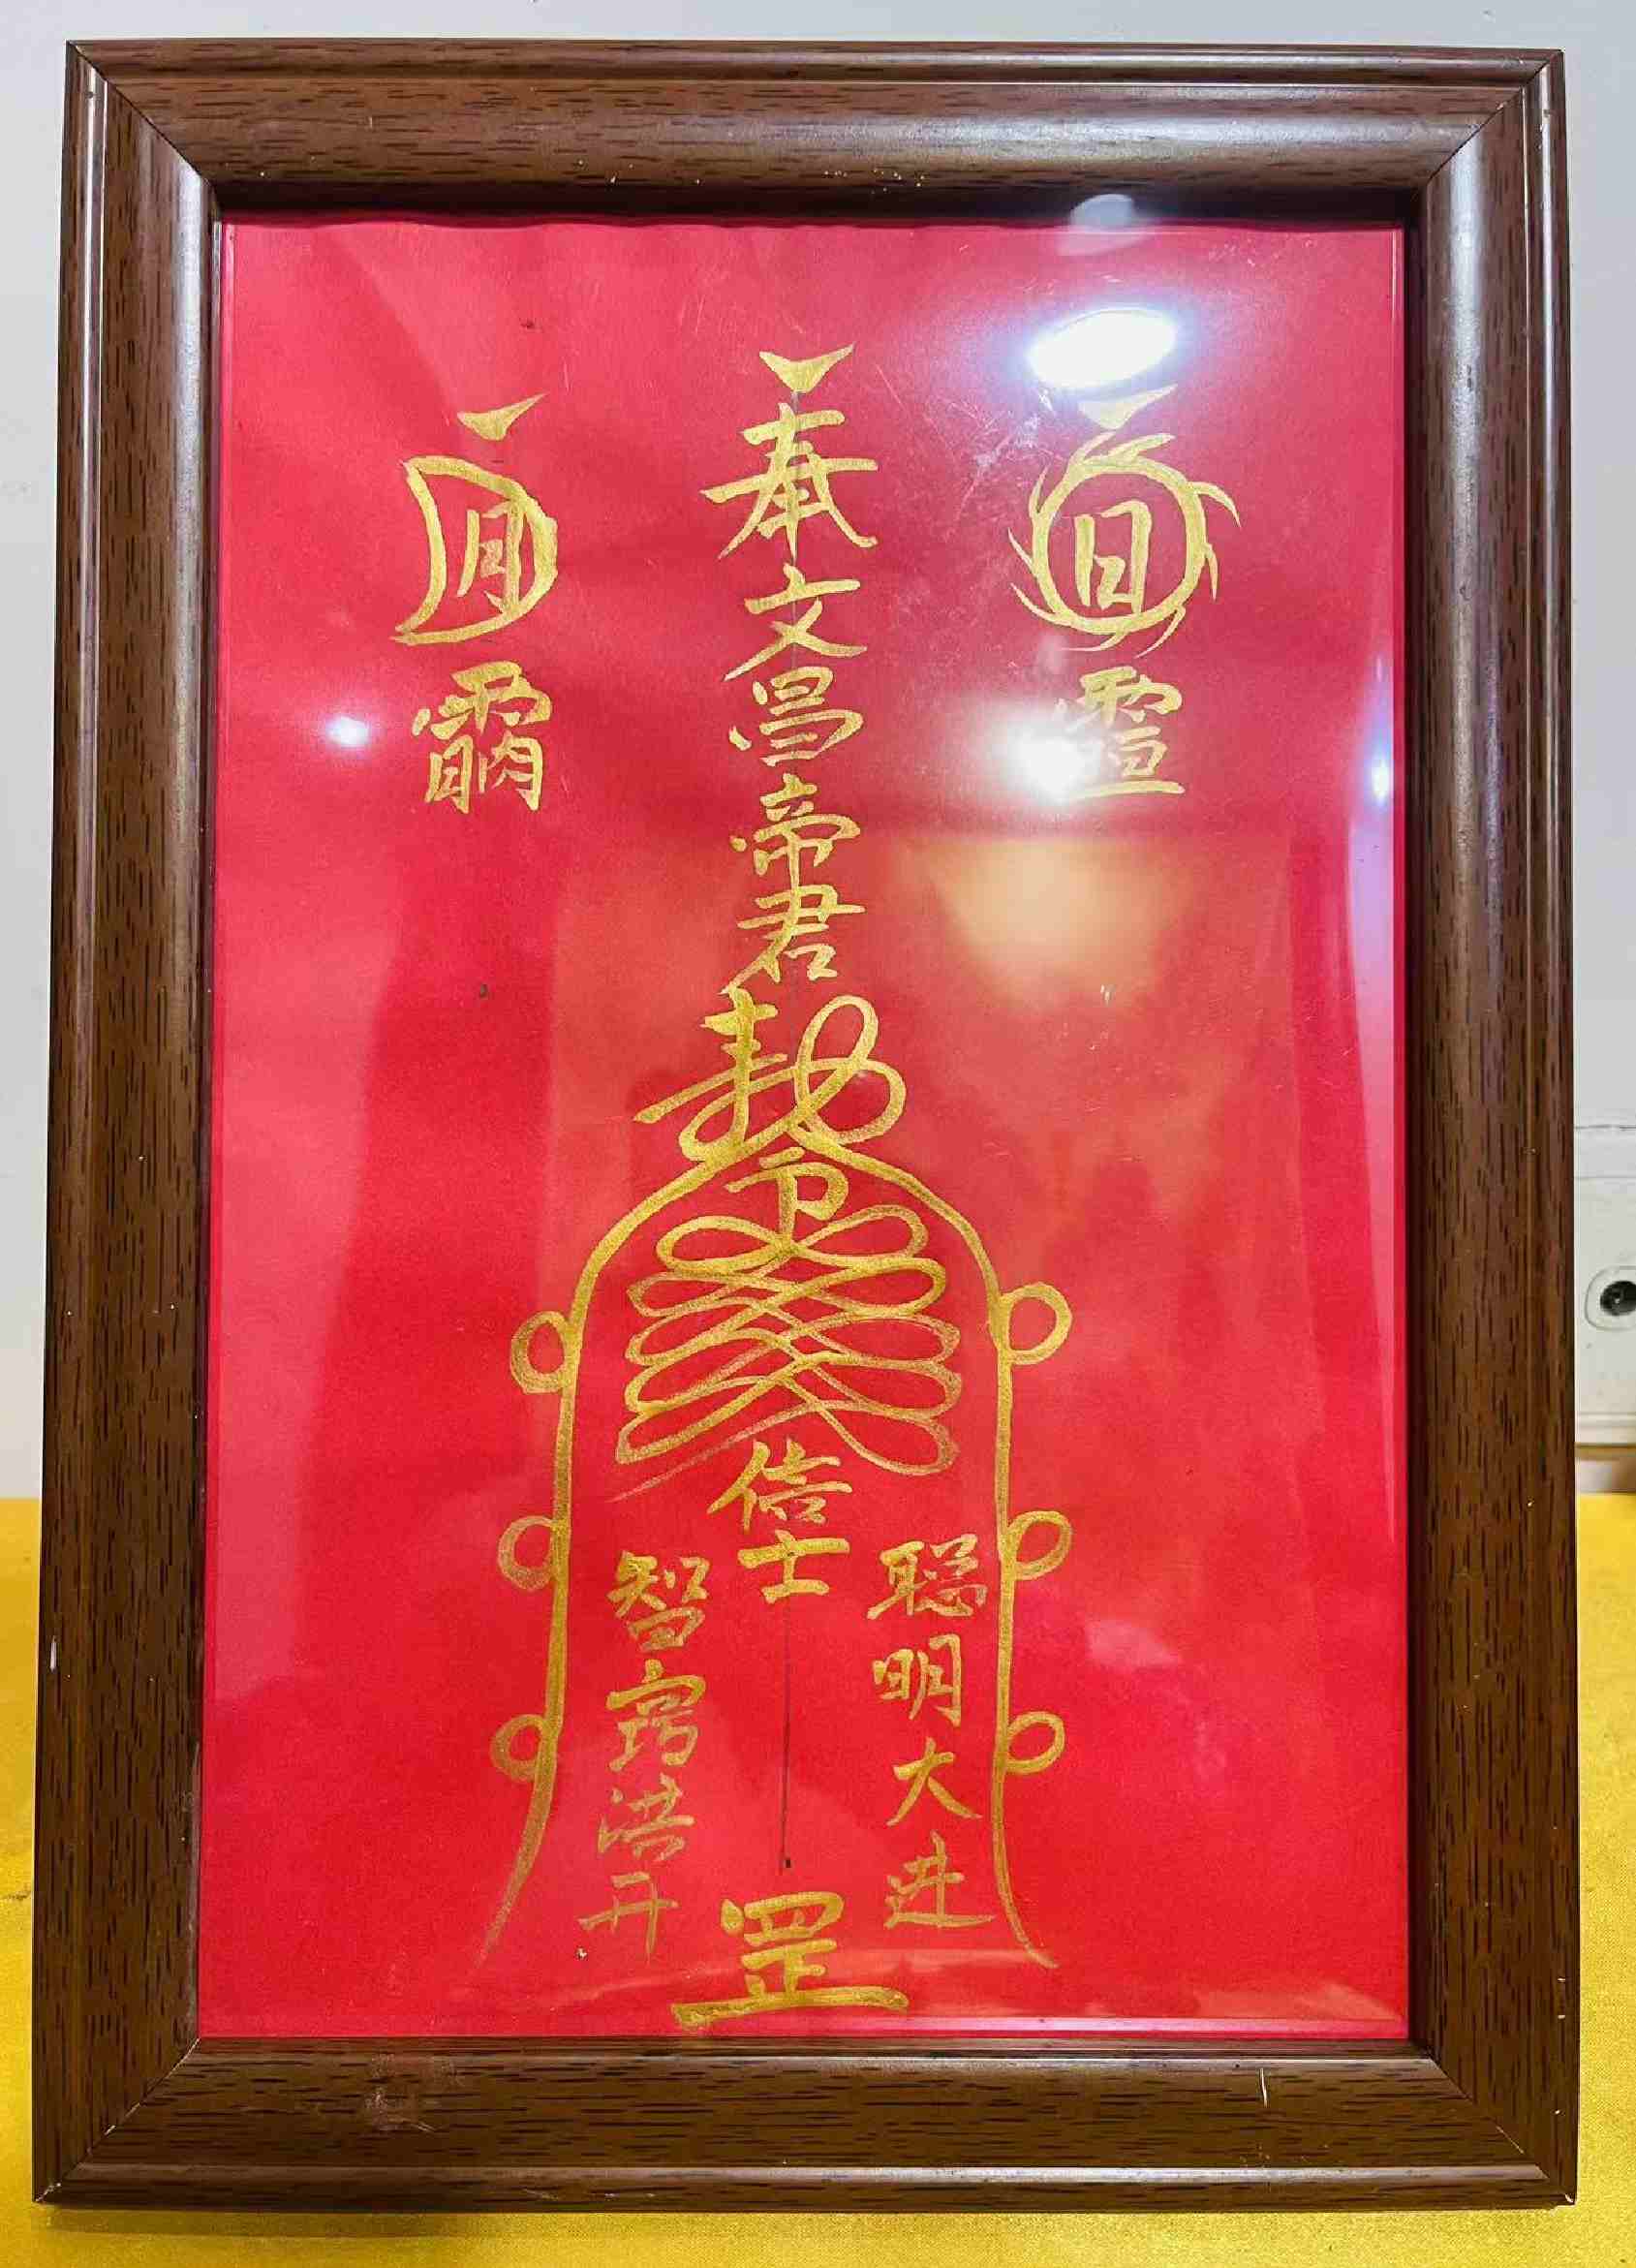 日
奉文昌帝君敕令
信士
月
聪明大进
智窍洪开
罡